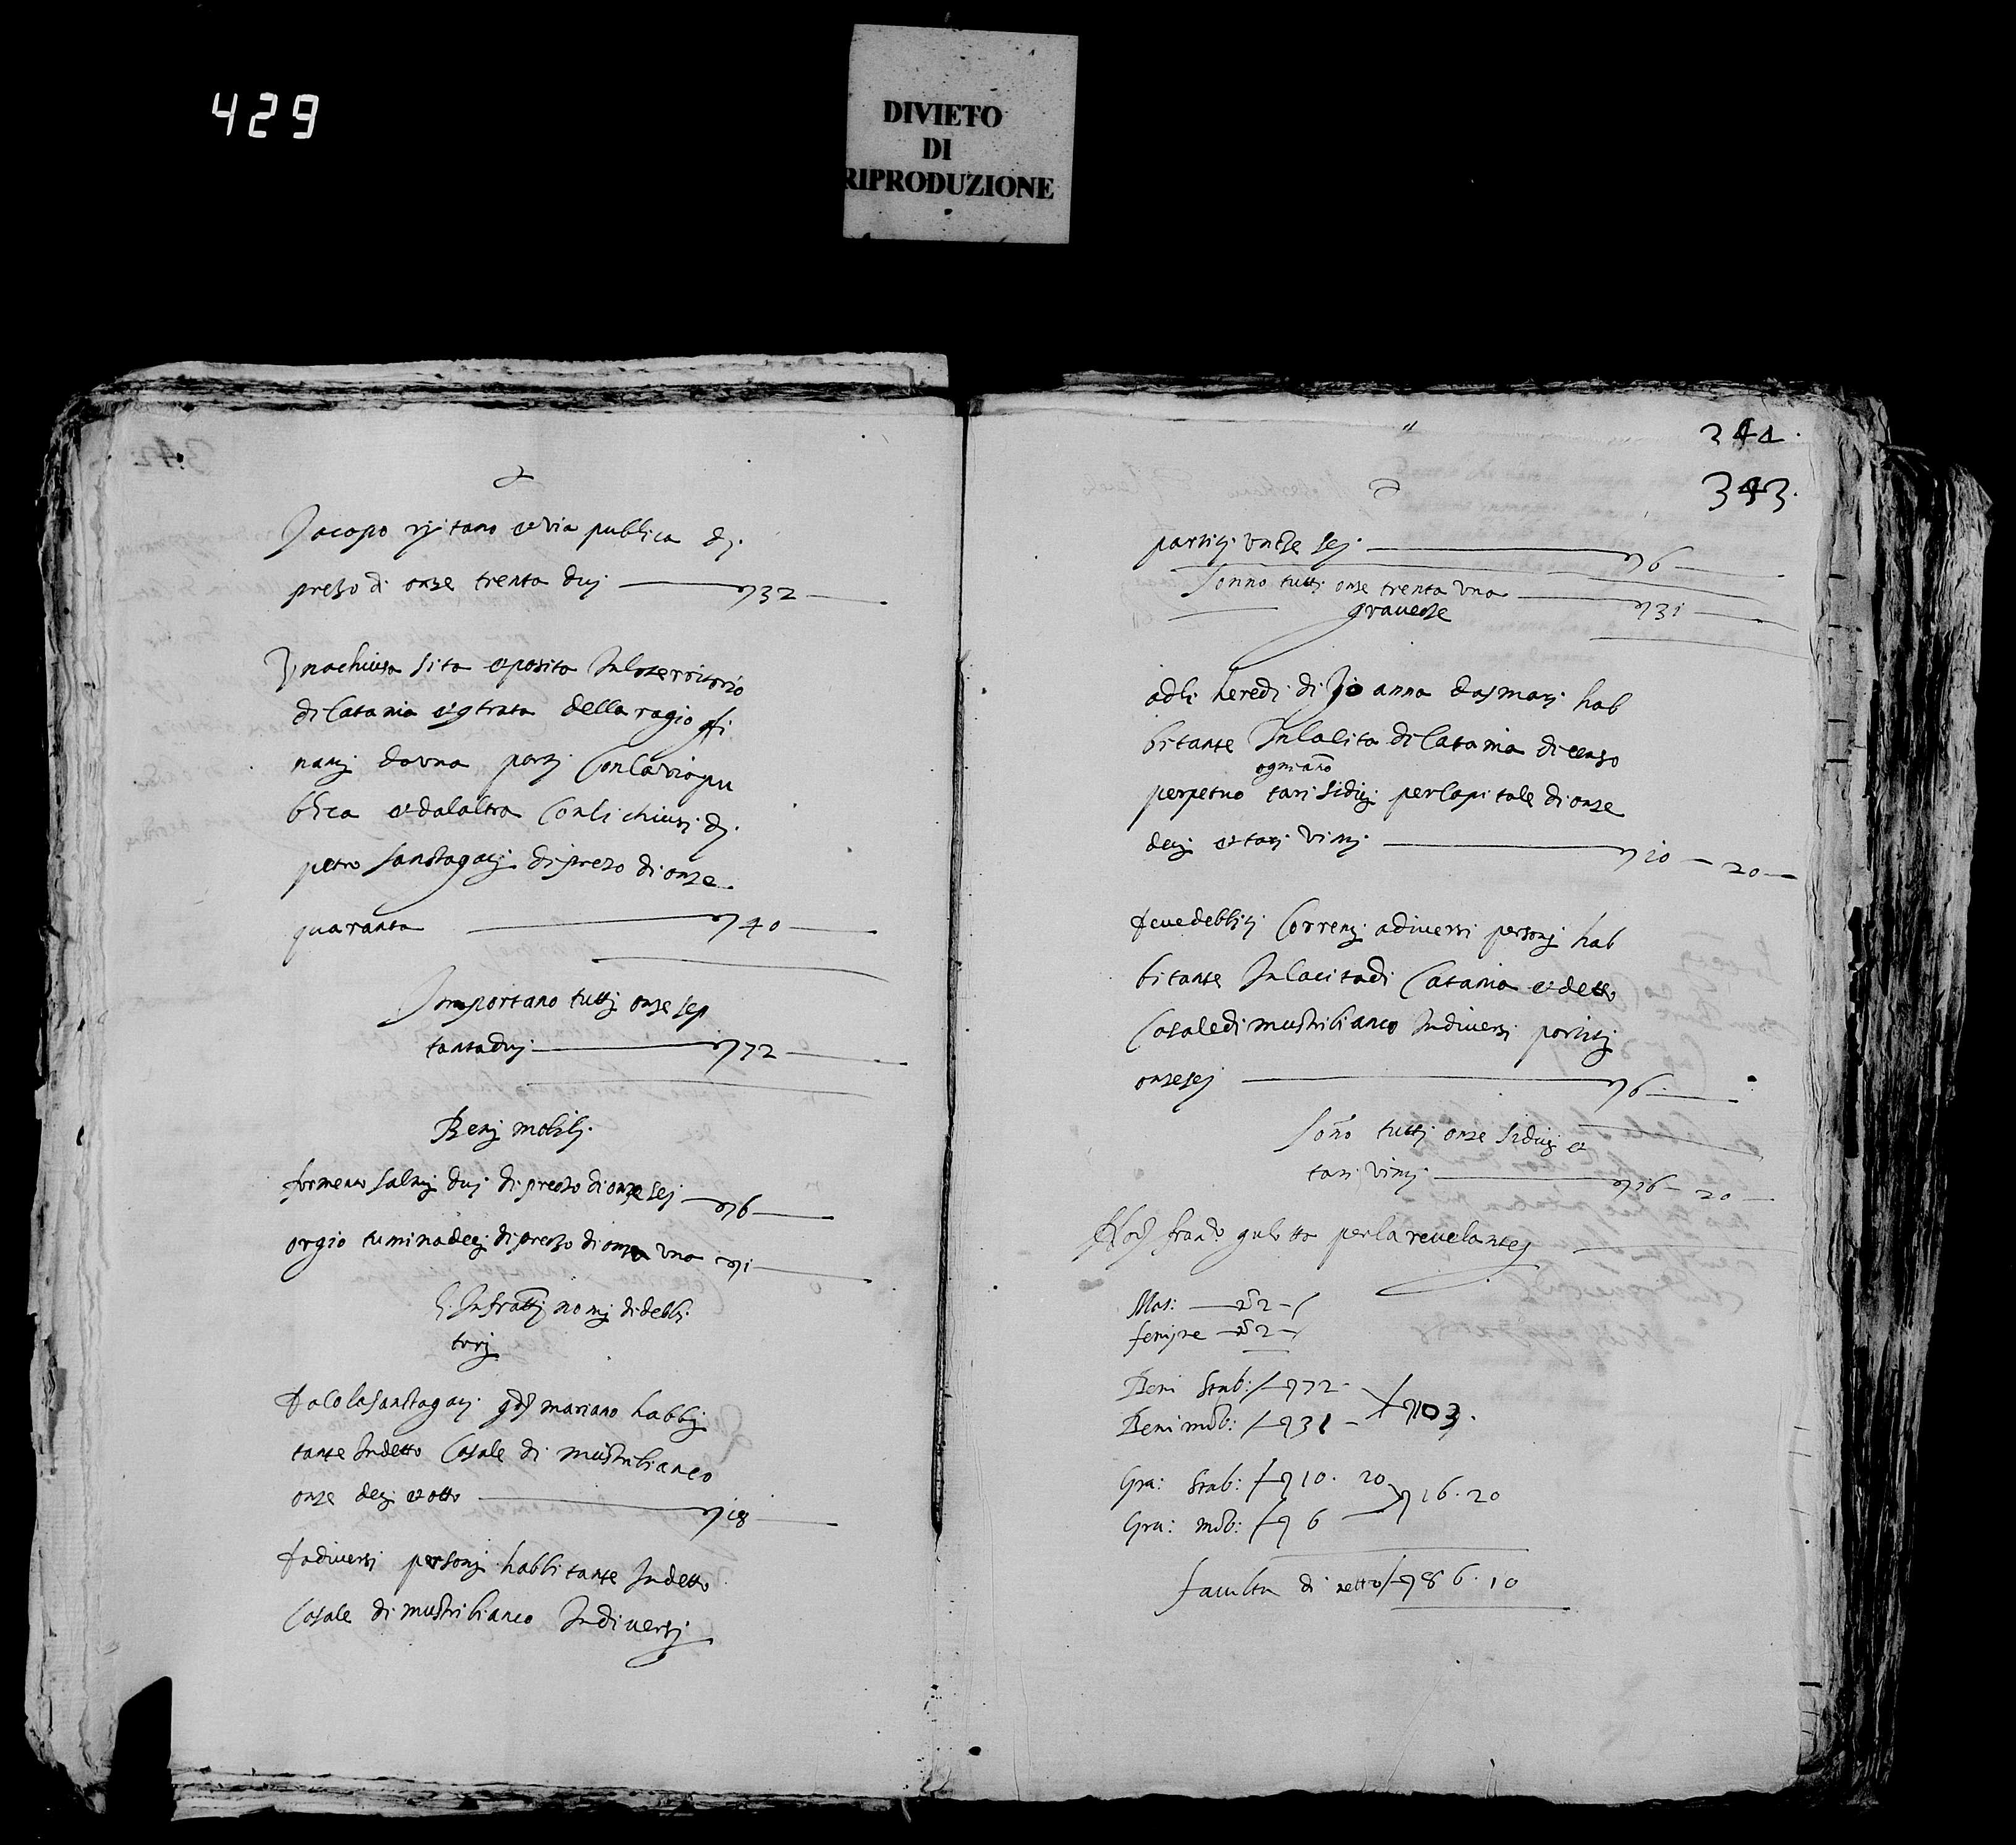 429
DIVIETO
DI
RIPRODUZIONE
Jacopo rijtano et via publica di
prezo di onze trenta dui 32
Vna chiusa sita et posita In lo territorio
di Catania et contrata della ragio fi
nanti da vna parti Con la via pu
blica et da laltra Con li chiusi di
petro Santagati di prezo di onze
quaranta 40
Importano tutti onze sep
tantadui 72
Beni mobili
formento salmi dui di prezo di onze sei 6
orgio tumina deci di prezo di onza vna 1
L Infratti nomi di debbi
tori
Paolo la Santagati qd mariano habbi
tante In detto Casale di mustribianco
onze deci et otto 18
da diuersi personi habbitante In detto
Casale di mustribianco In diuersi
244.
343.
partiti vnze sei 6
Sonno tutti onze trenta vna 31
graueze
ad li heredi di Joanna hab
bitante In la cita di Catania di censo
perpetuo ogni anno tari sidici per Capitale di onze
deci et tari vinti 10 20
deue debbiti Correnti a diuersi personi hab
bitante In la cita di Catania et detto
Casale di mustribianco In diuersi partiti
onze sei 6
Sono tutti onze sidici et
tari vinti 16 20
franco gulotta per la reuelante
Mas: 2
femine 2
Beni Stab: 72
Beni mob: 31 103.
Gra: Stab: 10. 20
Gra: mob: 6 16. 20
faculta di netto 86. 10